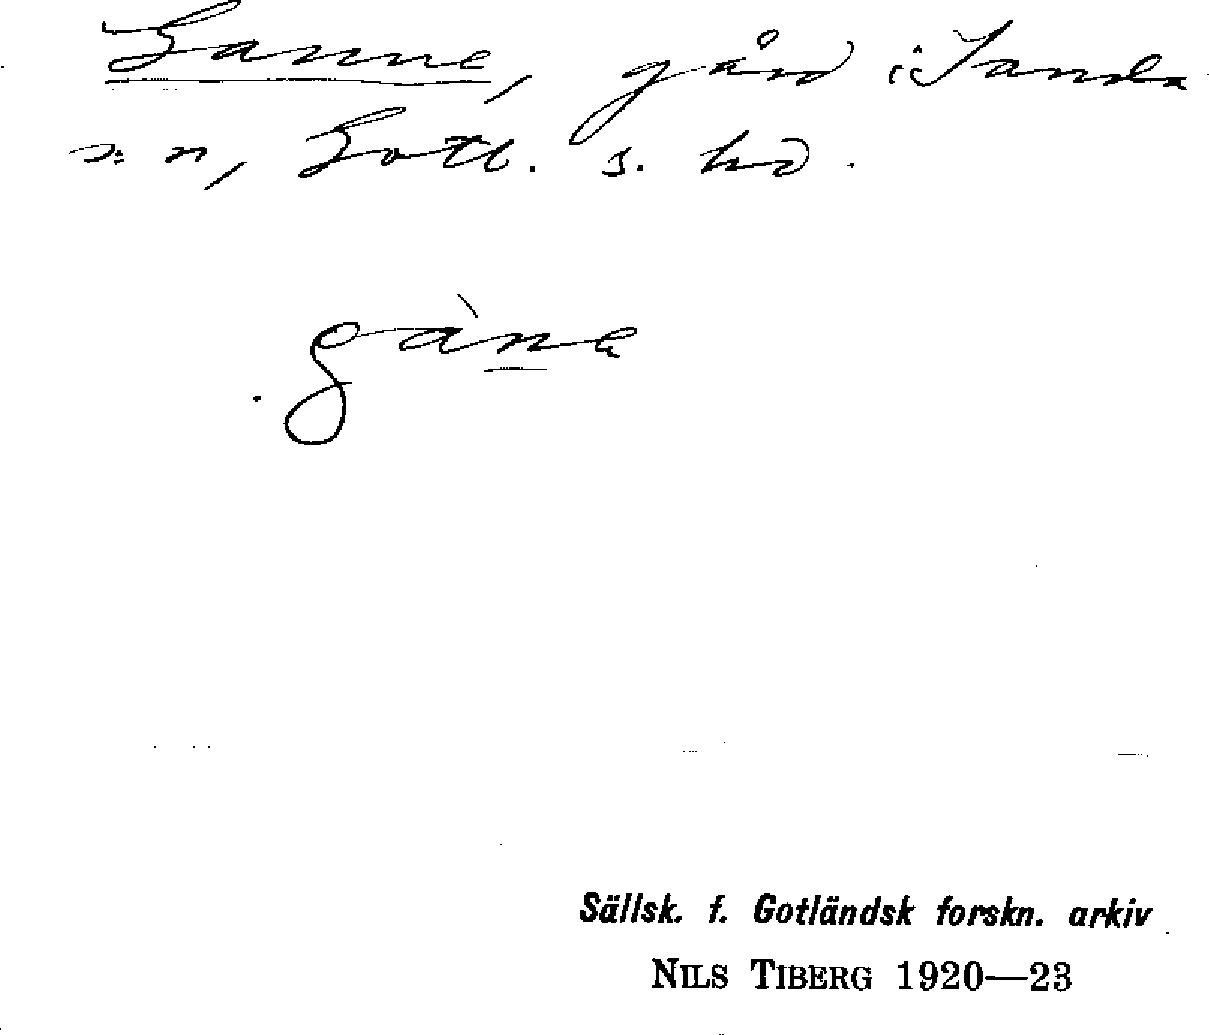 Ganne, gård i Sanda
s:n, Gotl. s. hd.
gàna
Sällsk. f. Gotländsk forskn. arkiv
NILS TIBERG 1920—23